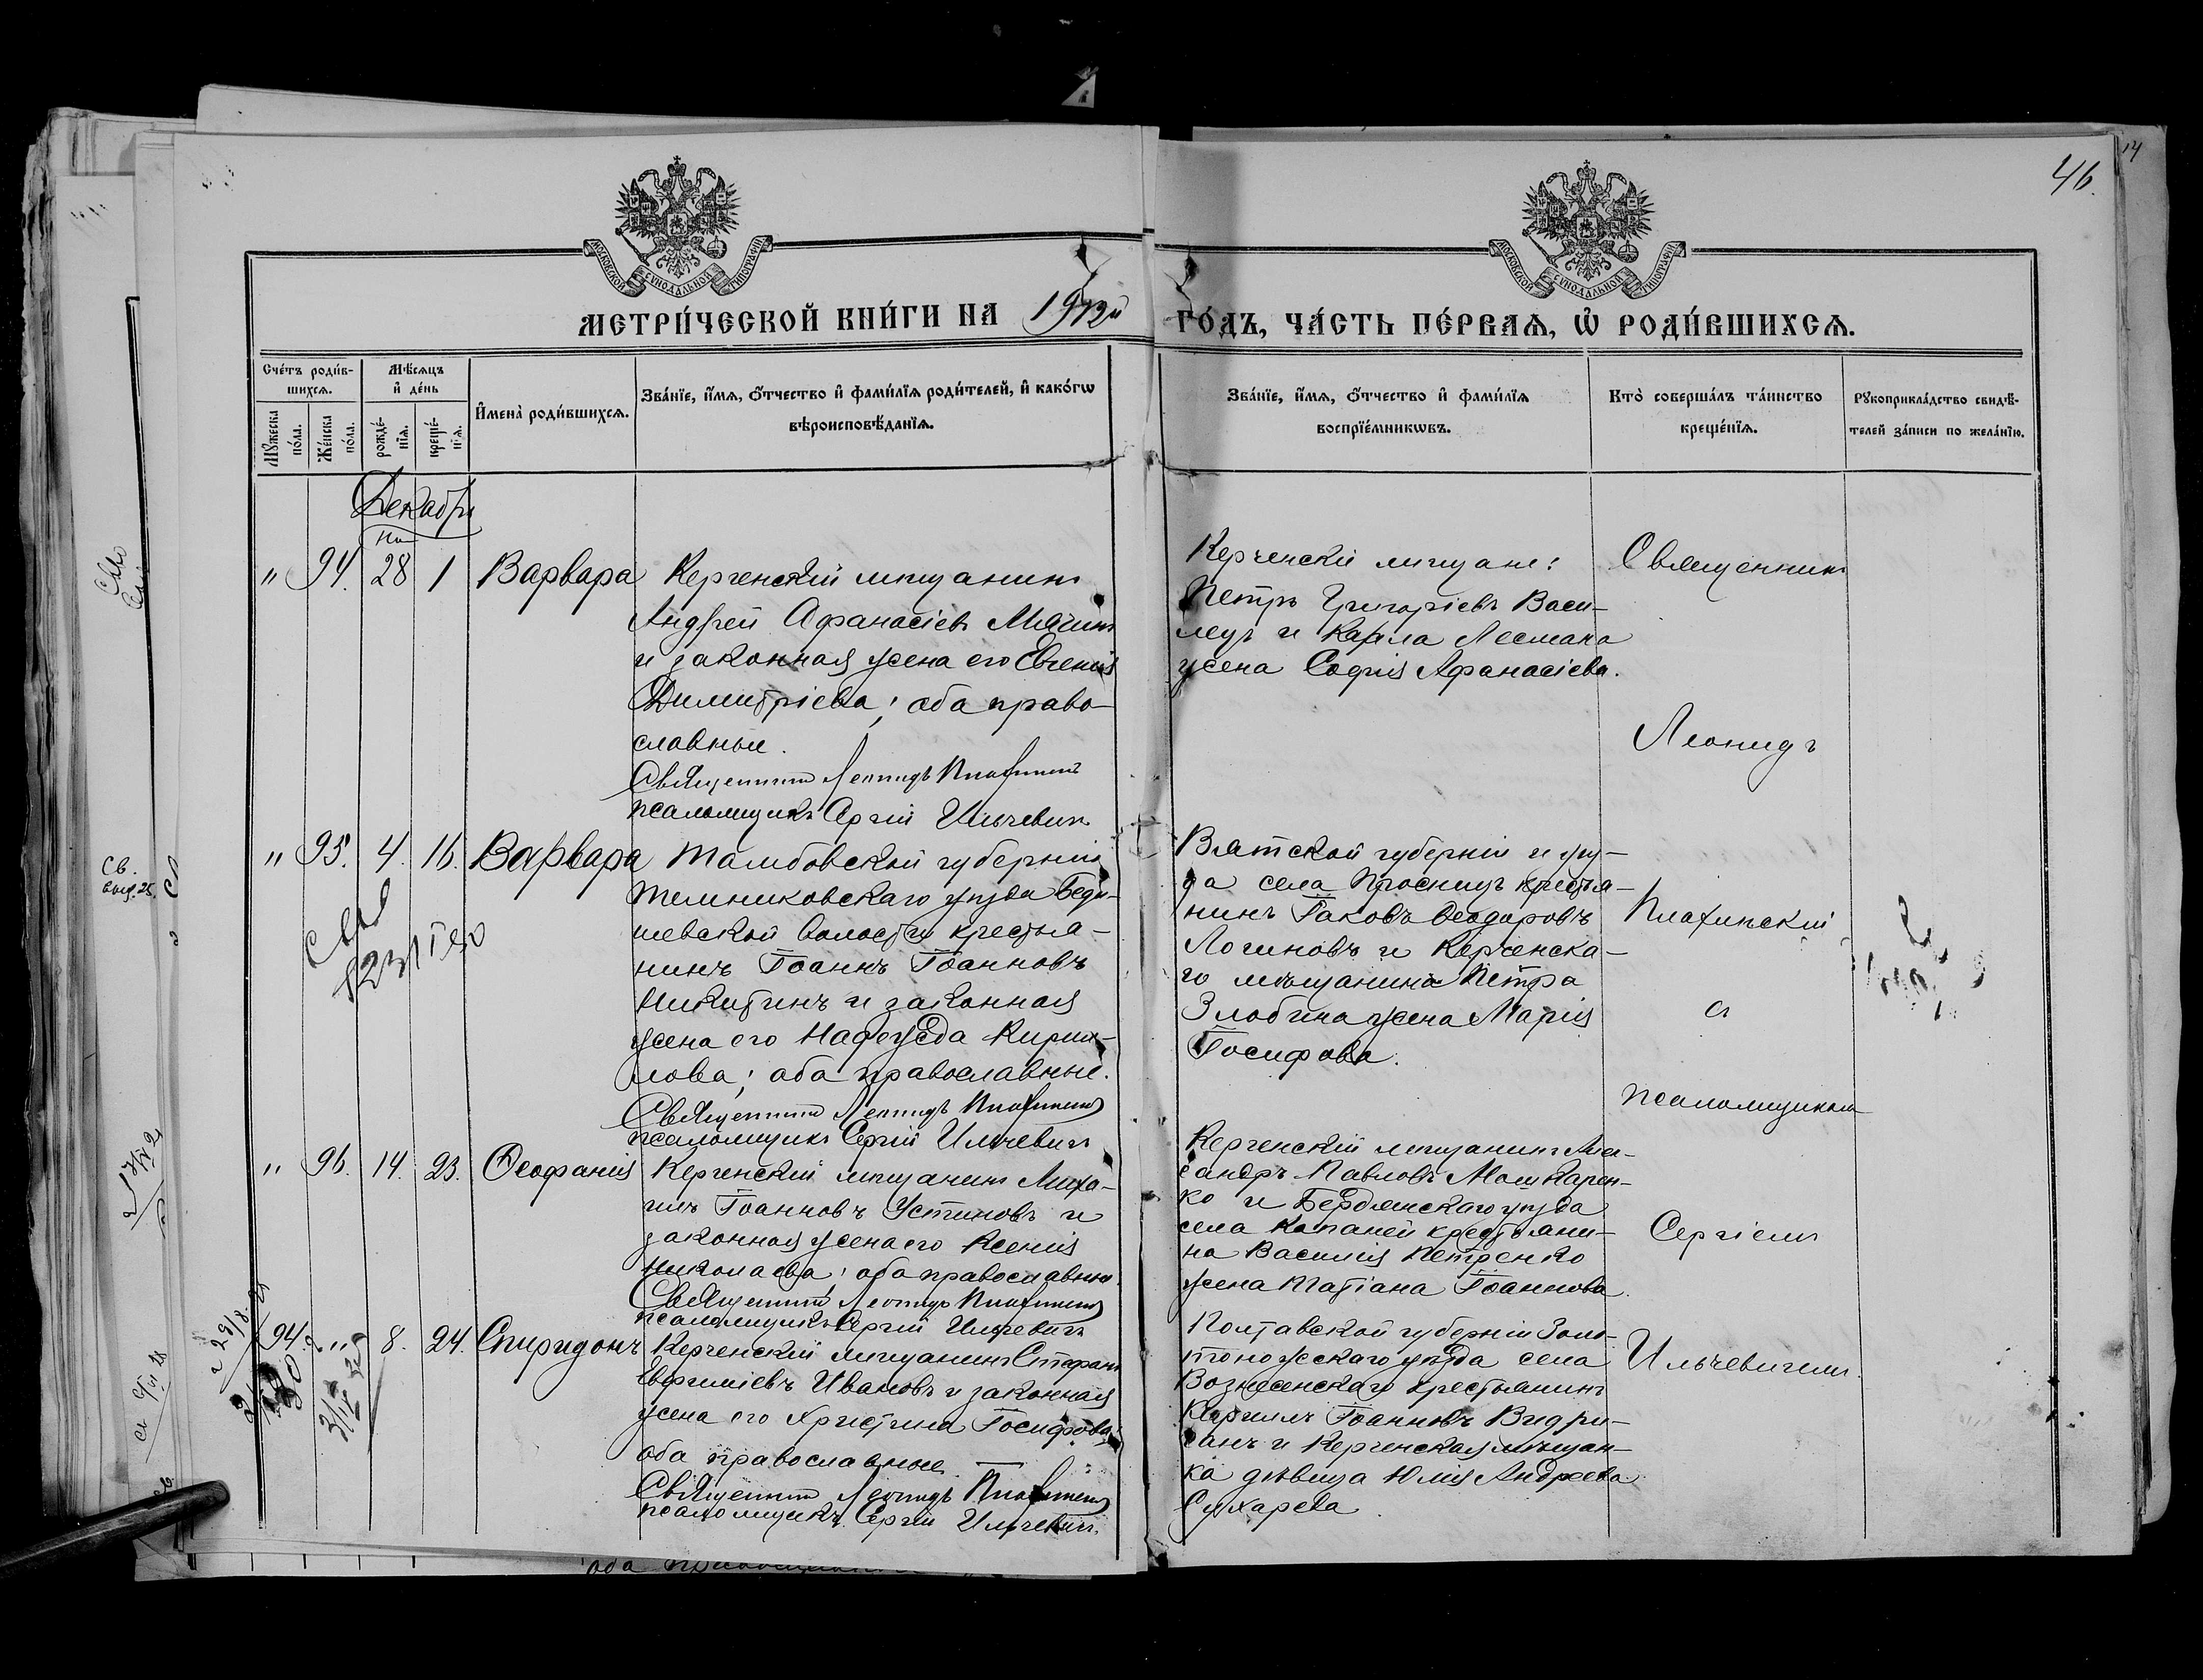 46.
14
МОСКОВСКОЙ СѴНОДАЛЬНОЙ ТИПОГРАФІИ
МОСКОВСКОЙ СѴНОДАЛЬНОЙ ТИПОГРАФІИ
МЕТРИ́ЧЕСКОЙ КНИ́ГИ НА 1912й ГО́ДЪ, ЧА́СТЬ ПЕ́РВАѦ, Ѡ҆ РОДИ́ВШИХСѦ.
Сче́тъ роди́в-
шихсѧ.
Мꙋ́жеска по́ла.
Же́нска по́ла.
Мѣ́сѧцъ и҆ де́нь
рожде́-
нїѧ.
креще́-
нїѧ.
И҆мена̀ роди́вшихсѧ.
Зва́нїе, и҆́мѧ, ѻ҆́тчество и҆ фами́лїѧ роди́телей, и҆ како́гѡ
вѣроисповѣ́данїѧ.
Зва́нїе, и҆́мѧ, ѻ҆́тчество и҆ фами́лїѧ
воспрїе́мникѡвъ.
Кто̀ соверша́лъ та́инство
креще́нїѧ.
Рꙋкоприкла́дство свидѣ́-
телей за́писи по жела́нїю.
Декабрь
" 94. 28 1 Варвара
Керченскій мѣщанинъ
Андрей Афанасіевъ
и законная жена его Евгенія
Димитріева; оба право-
славные.
Священникъ Леонидъ
псаломщикъ Сергій Ильчевичъ
Керченскіе мѣщане:
Петръ Григоріевъ Васи-
лецъ и Карла Лесмана
жена Софія Афанасіева.
Священникъ
Леонидъ
" 95. 4. 16. Варвара
Тамбовской губерніи
Темниковскаго уѣзда Беди-
шевской волости крестья-
нинъ Іоаннъ Іоанновъ
Никитинъ и законная
жена его Надежда Кирил-
лова; оба православные.
Священникъ Леонидъ
псаломщикъ Сергій Ильчевичъ
Вятской губерніи и уѣз-
да села Просницъ крестья-
нинъ Іаковъ Ѳеодоровъ
Логиновъ и Керченска-
го мѣщанина Петра
Злобина жена Марія
Іосифова.
съ
псаломщикомъ
" 96. 14. 23. Ѳеофанія
Керченскій мѣщанинъ Миха-
илъ Іоанновъ Устиновъ и
законная жена его Ксенія
Николаева; оба православные.
Священникъ Леонидъ
псаломщикъ Сергій Ильчевичъ
Керченскій мѣщанинъ Алек-
сандръ Павловъ Мошкарен-
ко и Бердянскаго уѣзда
села Копаней крестьяни-
на Василія Петренко
жена Татіана Іоаннова.
Сергіемъ
94. " 8. 24. Спиридонъ
Керченскій мѣщанинъ Стефанъ
Евфиміевъ Ивановъ и законная
жена его Христина Іосифова;
оба православные.
Священникъ Леонидъ
псаломщикъ Сергій Ильчевичъ
Полтавской губерніи Золо-
тоножскаго уѣзда села
Вознесенскаго крестьянинъ
Кириллъ Іоанновъ
и Керченская мѣщан-
ка дѣвица Юлія Андреева
Сухарева.
Ильчевичемъ.